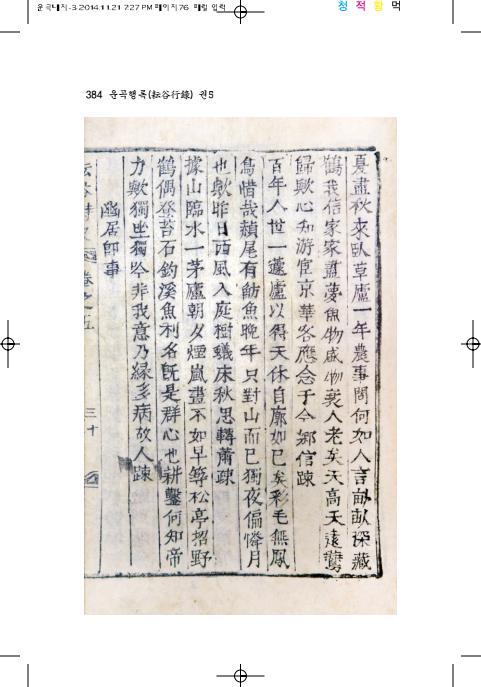 운곡내지-3 2014.11.21 7:27 PM 페이지76 매킬 입력
청 적 황 먹
384 운곡행록(耘谷行錄) 권5
夏盡秋來臥草廬一年農事問何如人言畝畝深藏
鶴我信家家盡夢魚物盛物衰人老矣天高天遠鴈
歸歟心知游宦京華客應念于今鄕信踈
百年人世一蘧廬以得天休自廓如已矣彩毛無鳳
鳥惜哉赬尾有魴魚晚年只對山而已獨夜偏憐月
也歟昨日西風入庭樹蟻床秋思轉蕭疎
據山臨水一茅廬朝夕煙嵐盡不如早等松亭招野
鶴偶登苔石釣溪魚利名旣是群心也耕鑿何知帝
力歟獨坐獨吟非我意乃緣多病故人踈
幽居卽事
卷之五
三十